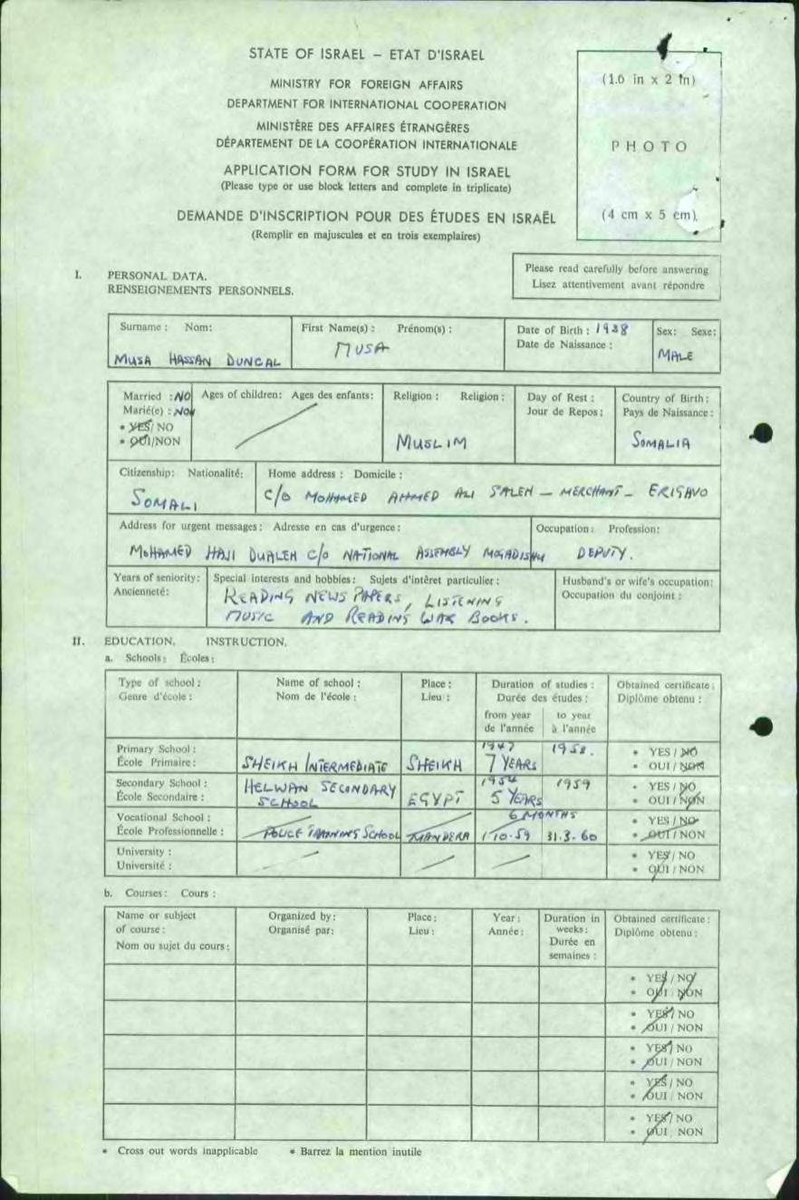 STATE OF ISRAEL – ETAT D'ISRAEL
MINISTRY FOR FOREIGN AFFAIRS
DEPARTMENT FOR INTERNATIONAL COOPERATION
MINISTÈRE DES AFFAIRES ÉTRANGÈRES
DÉPARTEMENT DE LA COOPÉRATION INTERNATIONALE
APPLICATION FORM FOR STUDY IN ISRAEL
(Please type or use block letters and complete in triplicate)
DEMANDE D'INSCRIPTION POUR DES ÉTUDES EN ISRAËL
(Remplir en majuscules et en trois exemplaires)
(1.6 in x 2 in)
PHOTO
(4 cm x 5 cm)
Please read carefully before answering
Lisez attentivement avant répondre
I. PERSONAL DATA.
RENSEIGNEMENTS PERSONNELS.
Surname : Nom: First Name(s) : Prénom(s) : Date of Birth : 1938 Sex: Sexe:
Date de Naissance :
MUSA HASSAN DUNCAL MUSA MALE
Married : NO Ages of children: Ages des enfants: Religion : Religion : Day of Rest : Country of Birth :
Marié(e) : NON Jour de Repos : Pays de Naissance :
* YES / NO
* OUI/NON MUSLIM SOMALIA
Citizenship: Nationalité: Home address : Domicile :
SOMALI C/O MOHAMED AHMED ALI SALEH – MERCHANT – ERIGAVO
Address for urgent messages : Adresse en cas d'urgence : Occupation : Profession:
MOHAMED HAJI DUALEH C/O NATIONAL ASSEMBLY MOGADISHU DEPUTY.
Years of seniority: Special interests and hobbies : Sujets d'intérêt particulier : Husband's or wife's occupation:
Ancienneté: Occupation du conjoint :
READING NEWS PAPERS, LISTENING
MUSIC AND READING WAR BOOKS.
II. EDUCATION. INSTRUCTION.
a. Schools: Écoles:
Type of school : Name of school : Place : Duration of studies : Obtained certificate :
Genre d'école : Nom de l'école : Lieu : Durée des études : Diplôme obtenu :
from year to year
de l'année à l'année
Primary School : 1947 1953. * YES / NO
École Primaire: SHEIKH INTERMEDIATE SHEIKH 7 YEARS * OUI / NON
Secondary School : HELWAN SECONDARY 1954 1959 * YES / NO
École Secondaire : SCHOOL EGYPT 5 YEARS * OUI / NON
Vocational School : 6 MONTHS * YES / NO
École Professionnelle : POLICE TRAINING SCHOOL MANDERA 1-10-59 31.3.60 * OUI / NON
University : * YES / NO
Université : * OUI / NON
b. Courses: Cours :
Name or subject Organized by: Place : Year : Duration in Obtained certificate :
of course : Organisé par: Lieu : Année : weeks : Diplôme obtenu :
Nom ou sujet du cours : Durée en
semaines :
* YES / NO
* OUI / NON
* YES / NO
* OUI / NON
* YES / NO
* OUI / NON
* YES / NO
* OUI / NON
* YES / NO
* OUI / NON
* Cross out words inapplicable * Barrez la mention inutile